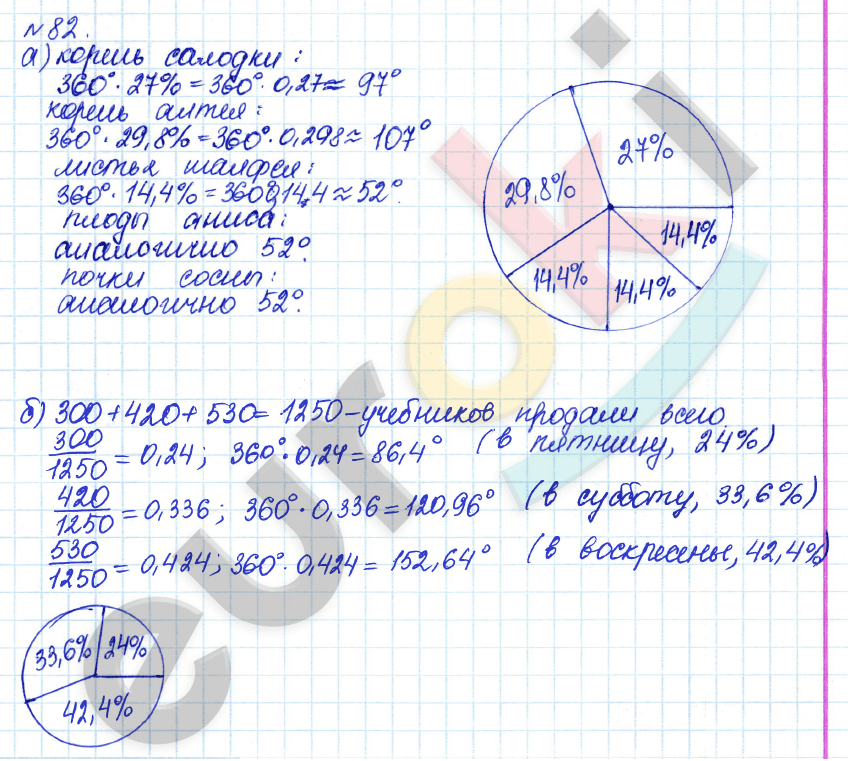 №82.
а) корень солодки:
360°·27% = 360°·0,27≈ 97°
корень алтея:
360°·29,8% = 360°·0,298≈ 107°
листья шалфея:
360°·14,4% = 360·0,14,4 ≈ 52°.
плоды аниса:
аналогично 52°.
почки сосны:
аналогично 52°.
27%
29,8%
14,4%
14,4%
14,4%
б) 300+420+530= 1250-учебников продали всего.
300/1250 = 0,24; 360°·0,24 = 86,4° (в пятницу, 24%)
420/1250 = 0,336; 360°·0,336 = 120,96° (в субботу, 33,6%)
530/1250 = 0,424; 360°·0,424 = 152,64° (в воскресенье, 42,4%)
33,6% 24%
42,4%
euroki